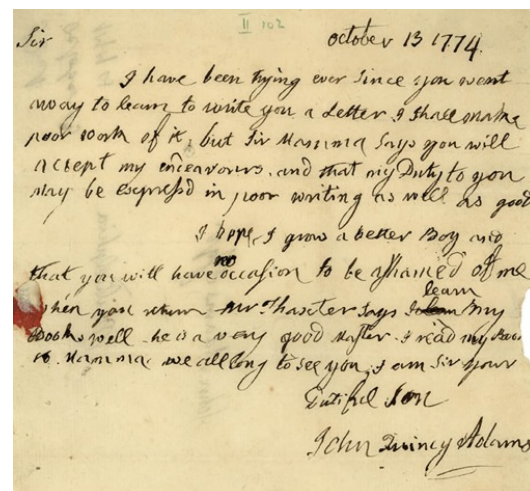 II 102
Sir october 13 1774.
I have been trying ever Since you went
away to learn to write you a Letter I Shall make
poor work of it, but Sir Mamma Says you will
accept my endeavours, and that my Duty to you
may be expressd in poor writing as well as good
I hope I grow a better Boy and
that you will have no occasion to be ashamed of me
when you return Mr Thaxter Says I learn my
Books well he is a very good Master. I read my
to Mamma. we all long to See you I am Sir your
Dutiful Son
John Quincy Adams